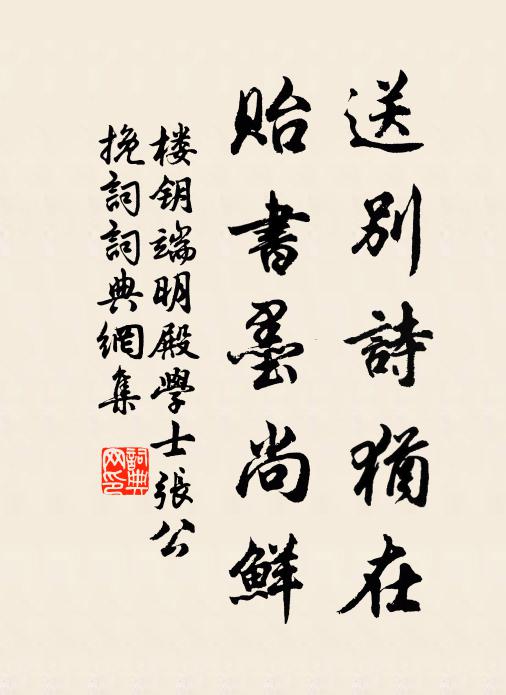 送别詩猶在
貽書墨尚鮮
楼钥端明殿學士張公
挽詞詞典網集
詞典
网印